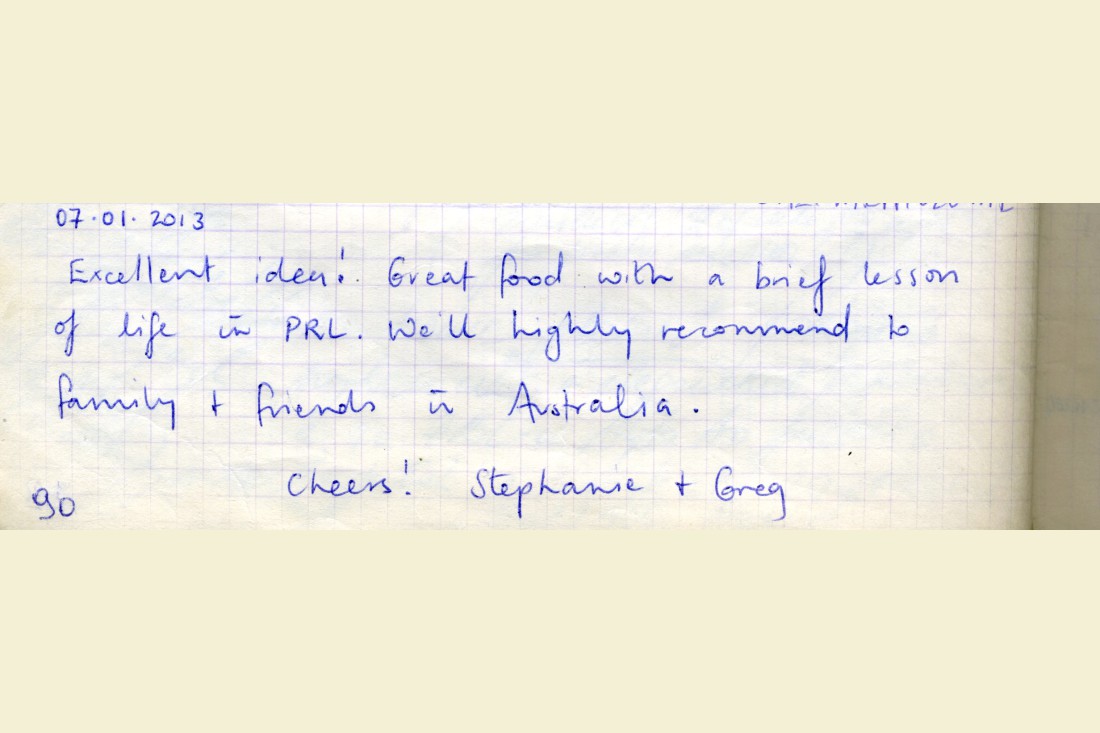 07.01.2013
Excellent idea! Great food with a brief lesson
of life in PRL. We'll highly recommend to
family + friends in Australia.
Cheers! Stephanie + Greg
90